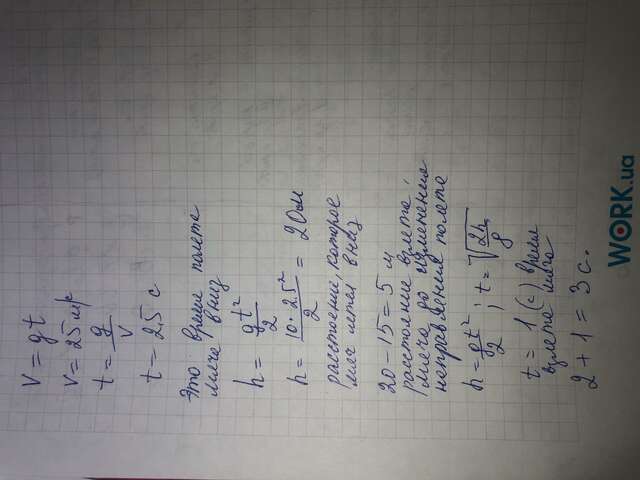 v = gt
v = 25 м/с
t = g/v
t = 2,5 с
Это время полета
мяча вниз
h = gt²/2
h = 10·2,5²/2 = 20м
расстояние, которое
мяч летел вниз
20 - 15 = 5 м
расстояние взлета
мяча до изменения
направления полета
h = gt²/2 ; t = √2h/g
t = 1 (с) время
взлета мяча
2 + 1 = 3 с.
WORK.ua